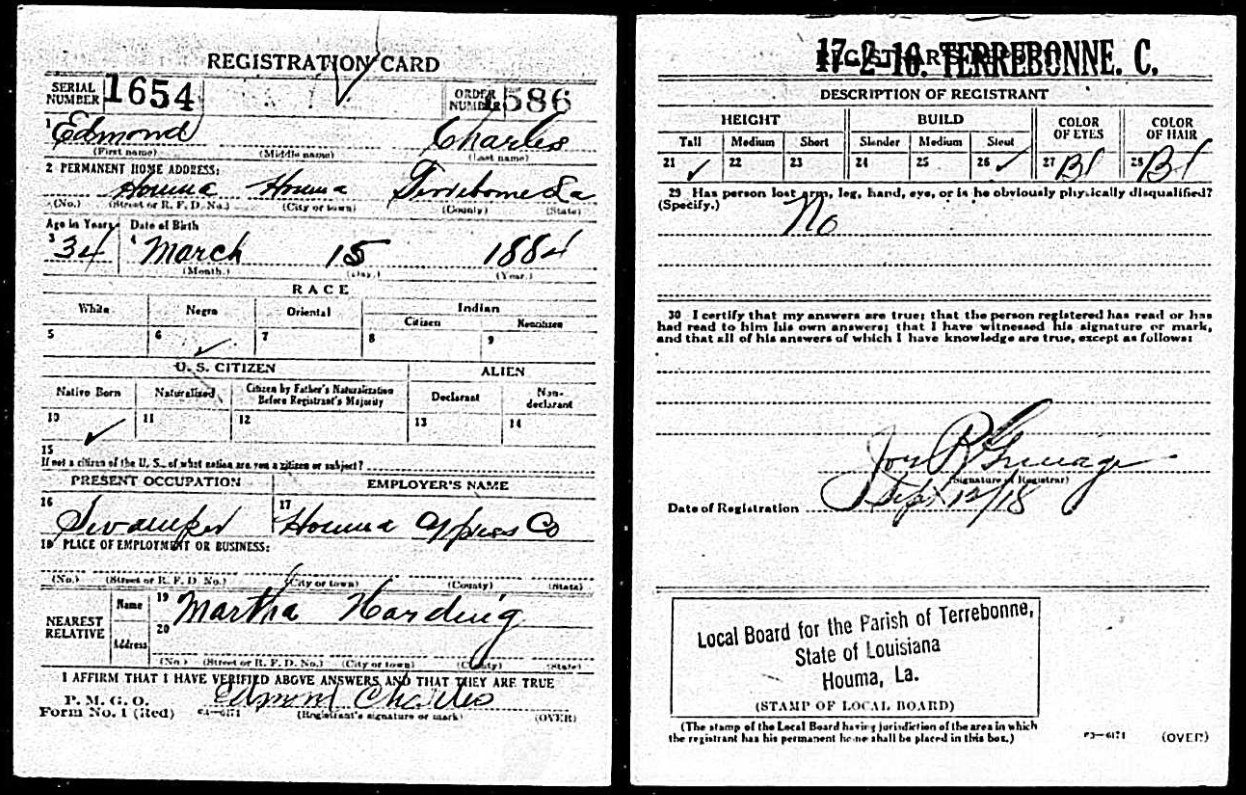 REGISTRATION CARD
SERIAL NUMBER 1654 ORDER NUMBER 1586
1 Edmond Charles
(First name) (Middle name) (Last name)
2 PERMANENT HOME ADDRESS:
Houma Houma Terrebonne La
(No.) (Street or R. F. D. No.) (City or town) (County) (State)
Age in Years Date of Birth
3 34 4 March 15 1884
(Month.) (Day.) (Year.)
RACE
White Negro Oriental Indian
Citizen Noncitizen
5 6 ✓ 7 8 9
U. S. CITIZEN ALIEN
Native Born Naturalized Citizen by Father's Naturalization Before Registrant's Majority Declarant Non-declarant
10 ✓ 11 12 13 14
15
If not a citizen of the U. S., of what nation are you a citizen or subject?
PRESENT OCCUPATION EMPLOYER'S NAME
16 Swamper 17 Houma Cypress Co
18 PLACE OF EMPLOYMENT OR BUSINESS:
(No.) (Street or R. F. D. No.) (City or town) (County) (State)
NEAREST RELATIVE Name 19 Martha Harding
Address 20
(No.) (Street or R. F. D. No.) (City or town) (County) (State)
I AFFIRM THAT I HAVE VERIFIED ABOVE ANSWERS AND THAT THEY ARE TRUE
P. M. G. O.
Form No. 1 (Red) 03—6171 Edmond Charles
(Registrant's signature or mark) (OVER)
17-2-16. TERREBONNE. C.
DESCRIPTION OF REGISTRANT
HEIGHT BUILD COLOR OF EYES COLOR OF HAIR
Tall Medium Short Slender Medium Stout
21 ✓ 22 23 24 25 26 ✓ 27 Bl 28 Bl
29 Has person lost arm, leg, hand, eye, or is he obviously physically disqualified?
(Specify.) No
30 I certify that my answers are true; that the person registered has read or has
had read to him his own answers; that I have witnessed his signature or mark,
and that all of his answers of which I have knowledge are true, except as follows:
(Signature of Registrar)
Date of Registration Sept 12/18
Local Board for the Parish of Terrebonne,
State of Louisiana
Houma, La.
(STAMP OF LOCAL BOARD)
(The stamp of the Local Board having jurisdiction of the area in which
the registrant has his permanent home shall be placed in this box.)
03—6171 (OVER)